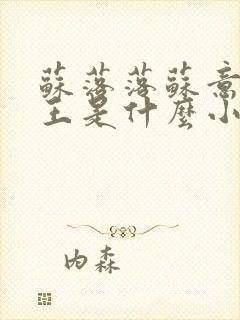 蘇落落蘇意
王是什麼小
内森